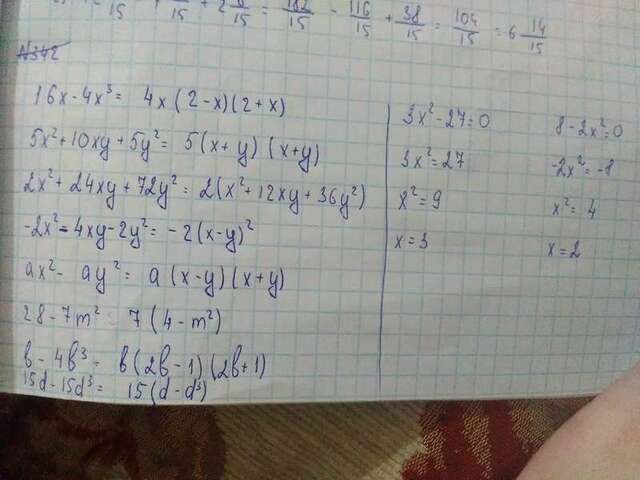 15 + 2 8/15 = 182/15 - 116/15 + 38/15 = 104/15 = 6 14/15
№342
16x - 4x³ = 4x(2-x)(2+x)
5x² + 10xy + 5y² = 5(x+y)(x+y)
2x² + 24xy + 72y² = 2(x² + 12xy + 36y²)
-2x² - 4xy - 2y² = -2(x-y)²
ax² - ay² = a(x-y)(x+y)
28 - 7m² = 7(4-m²)
b - 4b³ = b(2b-1)(2b+1)
15d - 15d³ = 15(d-d³)
3x² - 27 = 0
3x² = 27
x² = 9
x = 3
8 - 2x² = 0
-2x² = -8
x² = 4
x = 2